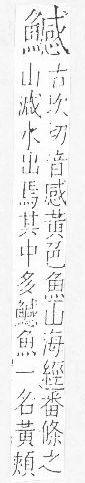 鱤
古坎切音感黃色魚山海經番條之
山減水出焉其中多鱤魚一名黃頰